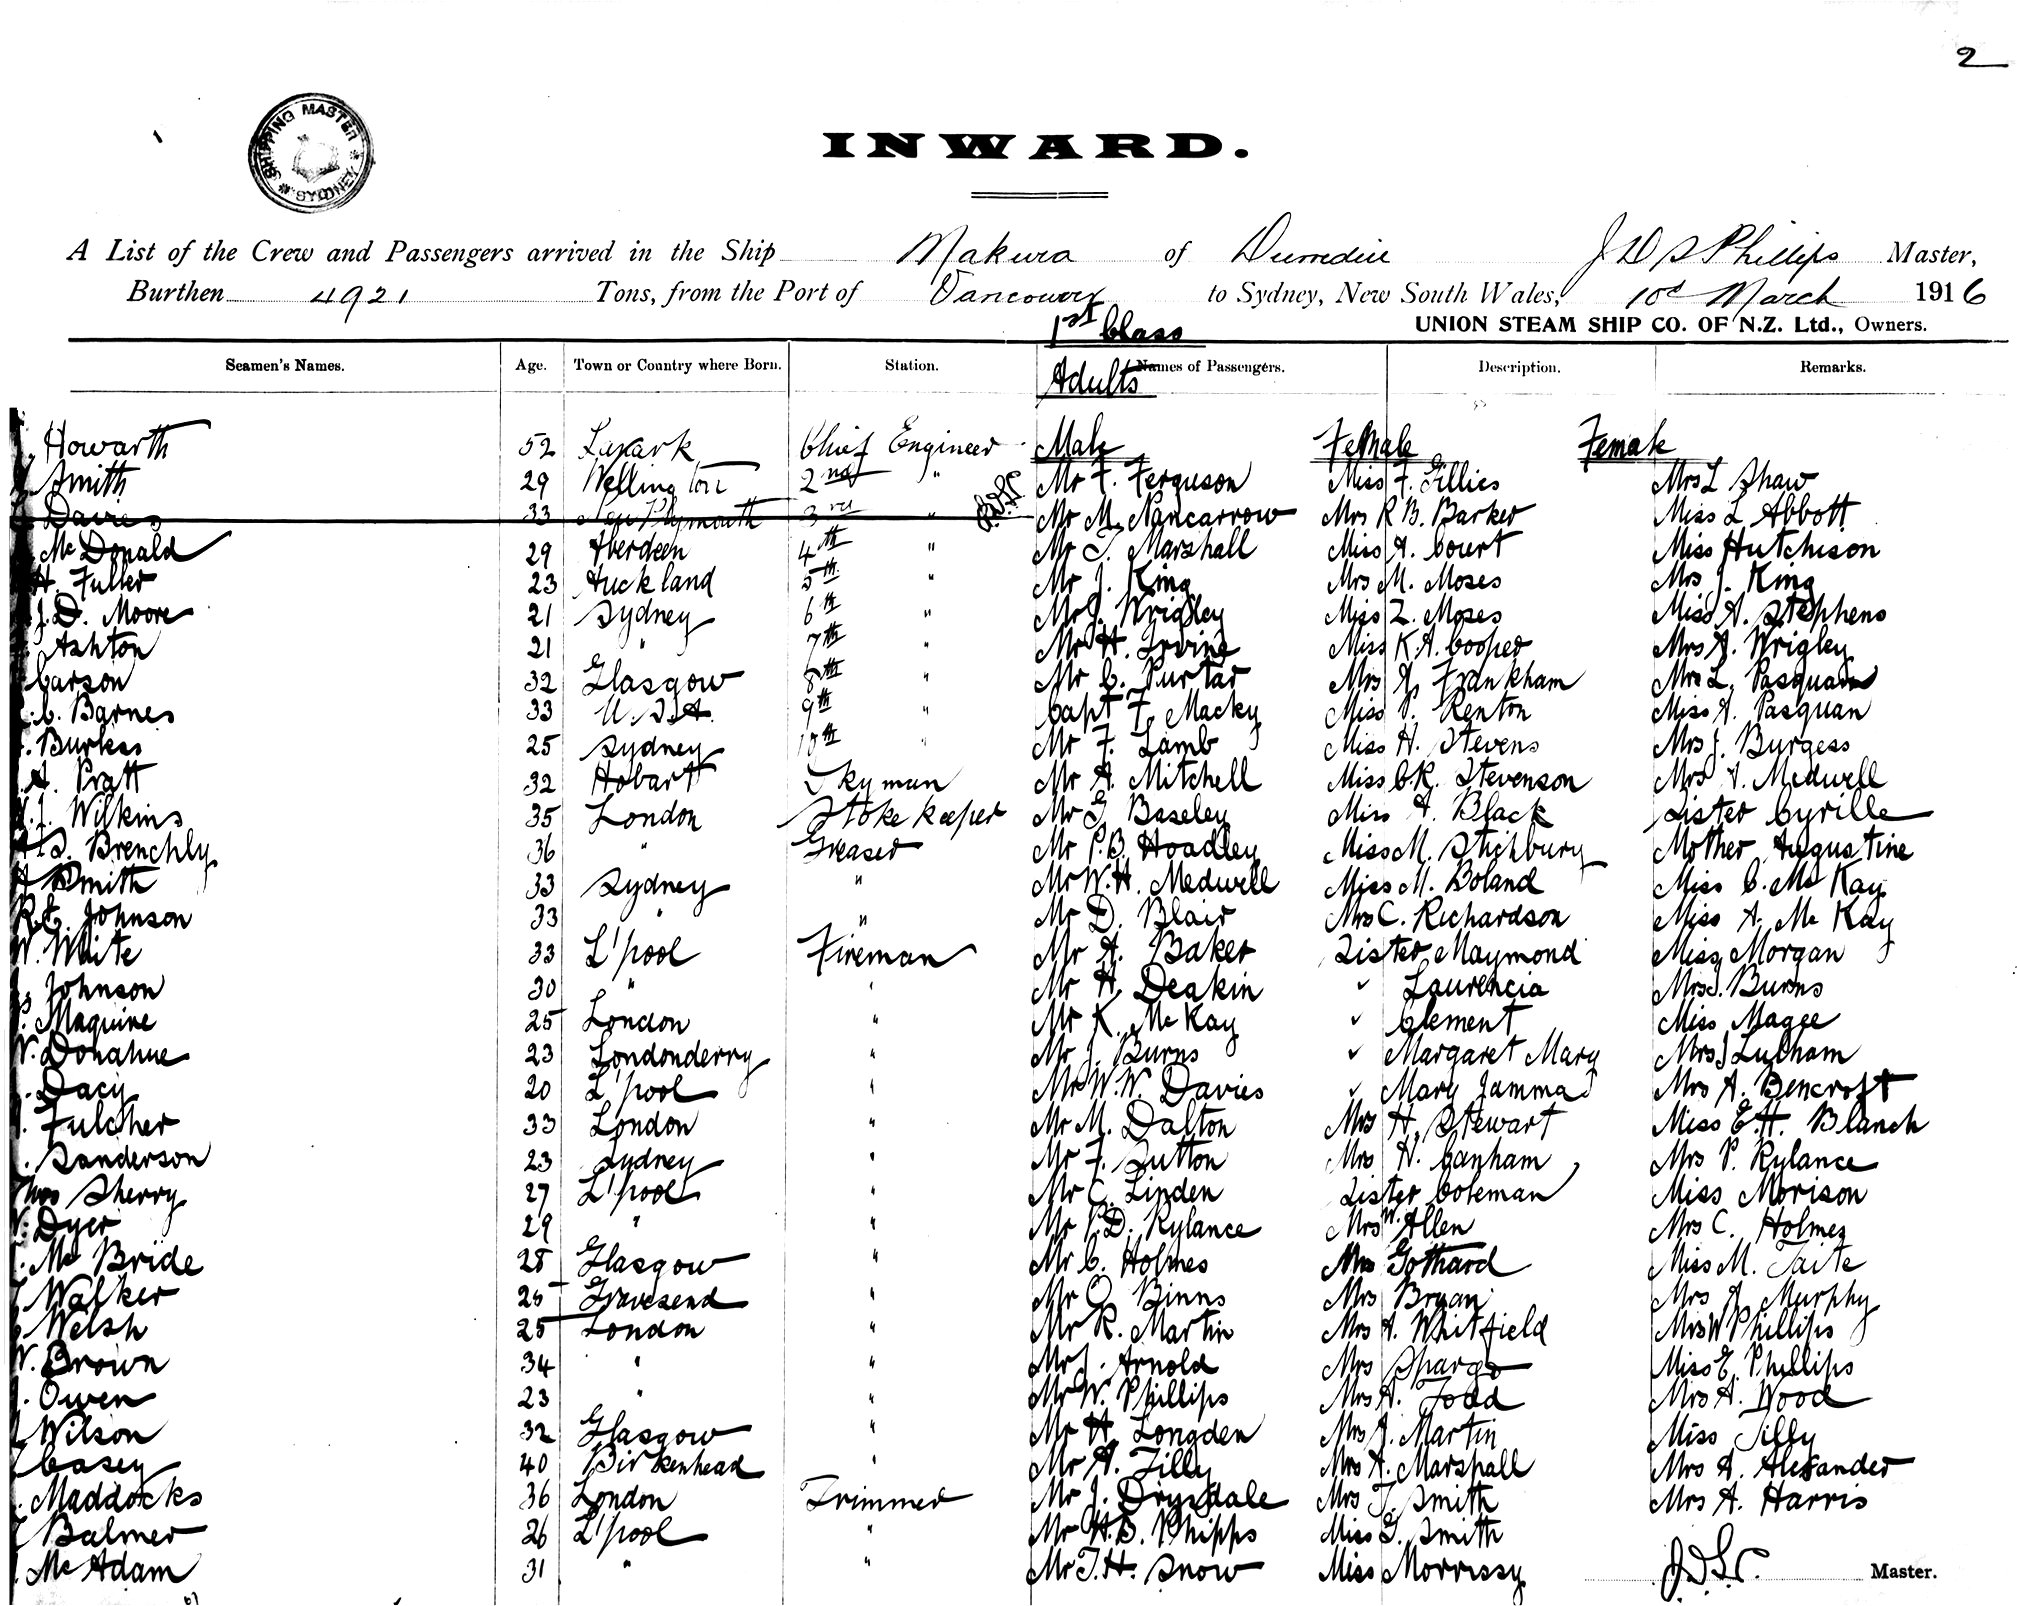 2
SHIPPING MASTER
SYDNEY
INWARD.
A List of the Crew and Passengers arrived in the Ship Makura of Dunedin J D S Phillips Master,
Burthen 4921 Tons, from the Port of Vancouver to Sydney, New South Wales, 10th March 1916
1st Class UNION STEAM SHIP CO. OF N.Z. Ltd., Owners.
Seamen's Names. Age. Town or Country where Born. Station. Names of Passengers. Description. Remarks.
Adults
Howarth 52 Lanark Chief Engineer Male Female Female
Smith 29 Wellington 2nd " Mr F. Ferguson Miss F. Gillies Mrs L Shaw
Davies 33 New Plymouth 3rd " Mr M. Nancarrow Mrs R B. Barker Miss L Abbott
Mc Donald 29 Aberdeen 4th " Mr T. Marshall Miss A. Court Miss Hutchison
H. Fuller 23 Auckland 5th " Mr J. King Mrs M. Moses Mrs J. King
J. D. Moore 21 Sydney 6th " Mr J. Wrigley Miss Z. Moses Miss A. Stephens
Ashton 21 " 7th " Mr H. Irvine Miss K. A. Cooper Mrs A. Wrigley
Carson 32 Glasgow 8th " Mr C. Purtar Mrs A. Frankham Mrs L. Pasquan
C. Barnes 33 U.S.A. 9th " Capt F. Macky Miss Renton Miss A. Pasquan
Burkes 25 Sydney 10th " Mr F. Lamb Miss H. Stevens Mrs J. Burgess
A. Pratt 32 Hobart Mr A. Mitchell Miss C.R. Stevenson Mrs A. Medwell
J. Wilkins 35 London Store keeper Mr G Baseley Miss A. Black Sister Cyrille
S. Brenchly 36 " Greaser Mr P.B. Hoadley Miss M. Stichbury Mother Augustine
A Smith 33 Sydney " Mr W. H. Medwell Miss M. Boland Miss C. Mc Kay
R.E. Johnson 33 " " Mr D. Blair Mrs C. Richardson Miss A. Mc Kay
W. White 33 L'pool Fireman Mr A. Baker Sister Maymond Miss Morgan
Johnson 30 " " Mr H. Deakin " Laurencia Mrs J. Burns
Maguire 25 London " Mr K. Mc Kay " Clement Miss Magee
W. Donahue 23 Londonderry " Mr J. Burns " Margaret Mary Mrs J Lubham
Dacy 20 L'pool " Mr W. W. Davies " Mary Jamma Mrs A. Bencroft
Fulcher 33 London " Mr M. Dalton Mrs H. Stewart Miss E. H. Blanch
Sanderson 23 Sydney " Mr F. Sutton Mrs H. Canham Mrs P. Rylance
Thos Sherry 27 L'pool " Mr C. Linden Sister Coleman Miss Morison
W. Dyer 29 " " Mr P.D. Rylance Mrs W. Allen Mrs C. Holmes
Mc Bride 28 Glasgow " Mr C. Holmes Mrs Gothard Miss M. Taite
Walker 25 Gravesend " Mr O. Binns Mrs Bryan Mrs A Murphy
Welsh 25 London " Mr R. Martin Mrs A. Whitfield Mrs W Phillips
W. Brown 34 " " Mr J. Arnold Mrs Spargo Miss E. Phillips
Owen 23 " " Mr W. Phillips Mrs A. Todd Mrs A. Wood
Wilson 32 Glasgow " Mr H. Longden Mrs J. Martin Miss Tilly
Casey 40 Birkenhead " Mr A. Tilly Mrs A. Marshall Mrs A. Alexander
Maddocks 36 London Trimmer Mr J. Drysdale Mrs T. Smith Mrs A. Harris
Balmer 26 L'pool " Mr H.B. Phipps Miss G. Smith
Mc Adam 31 " " Mr T.H. Snow Miss Morrissy J.D.S.P. Master.